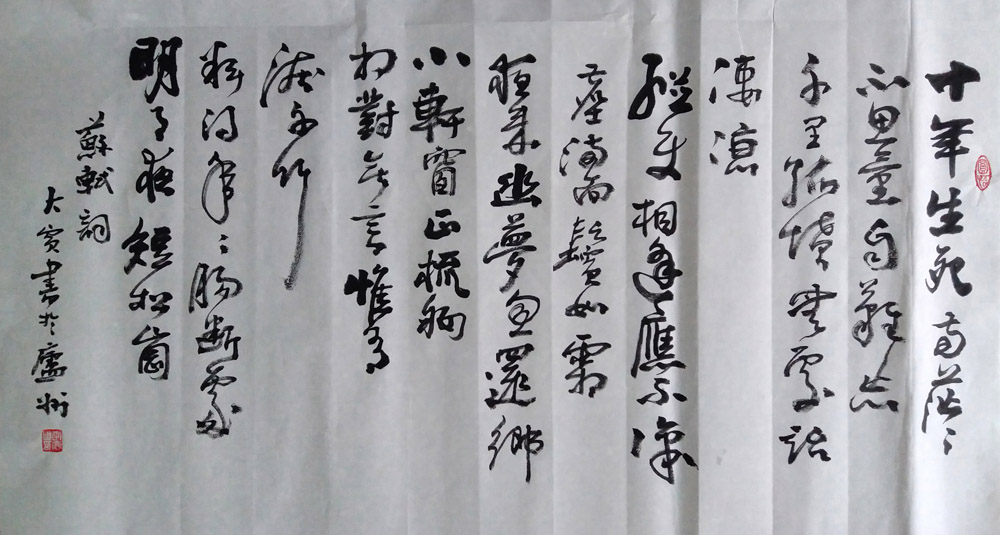 十年生死两茫々
不思量自難忘
千里孤墳無處話
淒涼
縱使相逢應不識
塵满面鬢如霜
夜来幽夢忽還鄉
小軒窗正梳妝
相對无言惟有
淚千行
料得年々腸断處
明月夜短松崗
蘇軾詞
大賓書於廬州